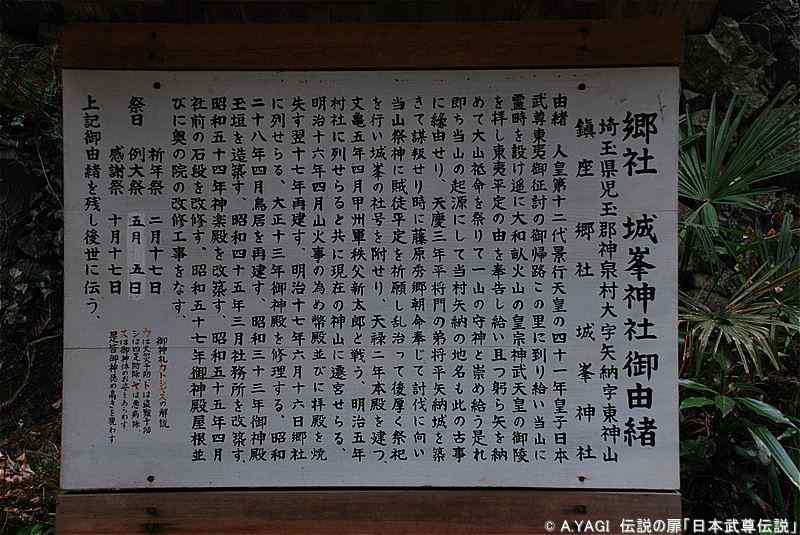 郷社　城峯神社御由緒
埼玉県児玉郡神泉村大字矢納字東神山
鎮座　郷社　城峯神社
由緒　人皇第十二代景行天皇の四十一年皇子日本
武尊東夷御征討の御帰路この里に到り給い当山に
霊畤を設け遥に大和畝火山の皇宗神武天皇の御陵
を拝し東夷平定の由を奉告し給い且つ躬ら矢を納
めて大山祗命を祭りて一山の守神と崇め給う是れ
即ち当山の起源にして当村矢納の地名も此の古事
に縁由せり、天慶三年平将門の弟将平矢納城を築
きて謀叛せり時に藤原秀郷朝命奉じて討伐に向い
当山祭神に賊徒平定を祈願し乱治って後厚く祭祀
を行い城峯の社号を附せり、天禄二年本殿を建つ、
文亀五年四月甲州軍秩父新太郎と戦う、明治五年
村社に列せらると共に現在の神山に遷宮せらる、
明治十六年四月山火事の為め幣殿並びに拝殿を焼
失す翌十七年再建す、明治十七年六月十六日郷社
に列せらる、大正十三年御神殿を修理する、昭和
二十八年四月鳥居を再建す、昭和三十三年御神殿
玉垣を造築す、昭和四十五年三月社務所を改築す、
昭和五十四年神楽殿を改築す、昭和五十五年四月
社前の石段を改修す、昭和五十七年御神殿屋根並
びに奥の院の改修工事をなす、
祈年祭　二月十七日
祭日　例大祭　五月　五日
感謝祭　十月十七日
上記御由緒を残し後世に伝う、
御神札カトシヤミの解説
カは火災予防トは盗難予防
シは四足防除ヤは悪病除
ミは御神体のお姿をあらわす
是皆御神徳の高さを現わす
© A.YAGI　伝説の扉「日本武尊伝説」